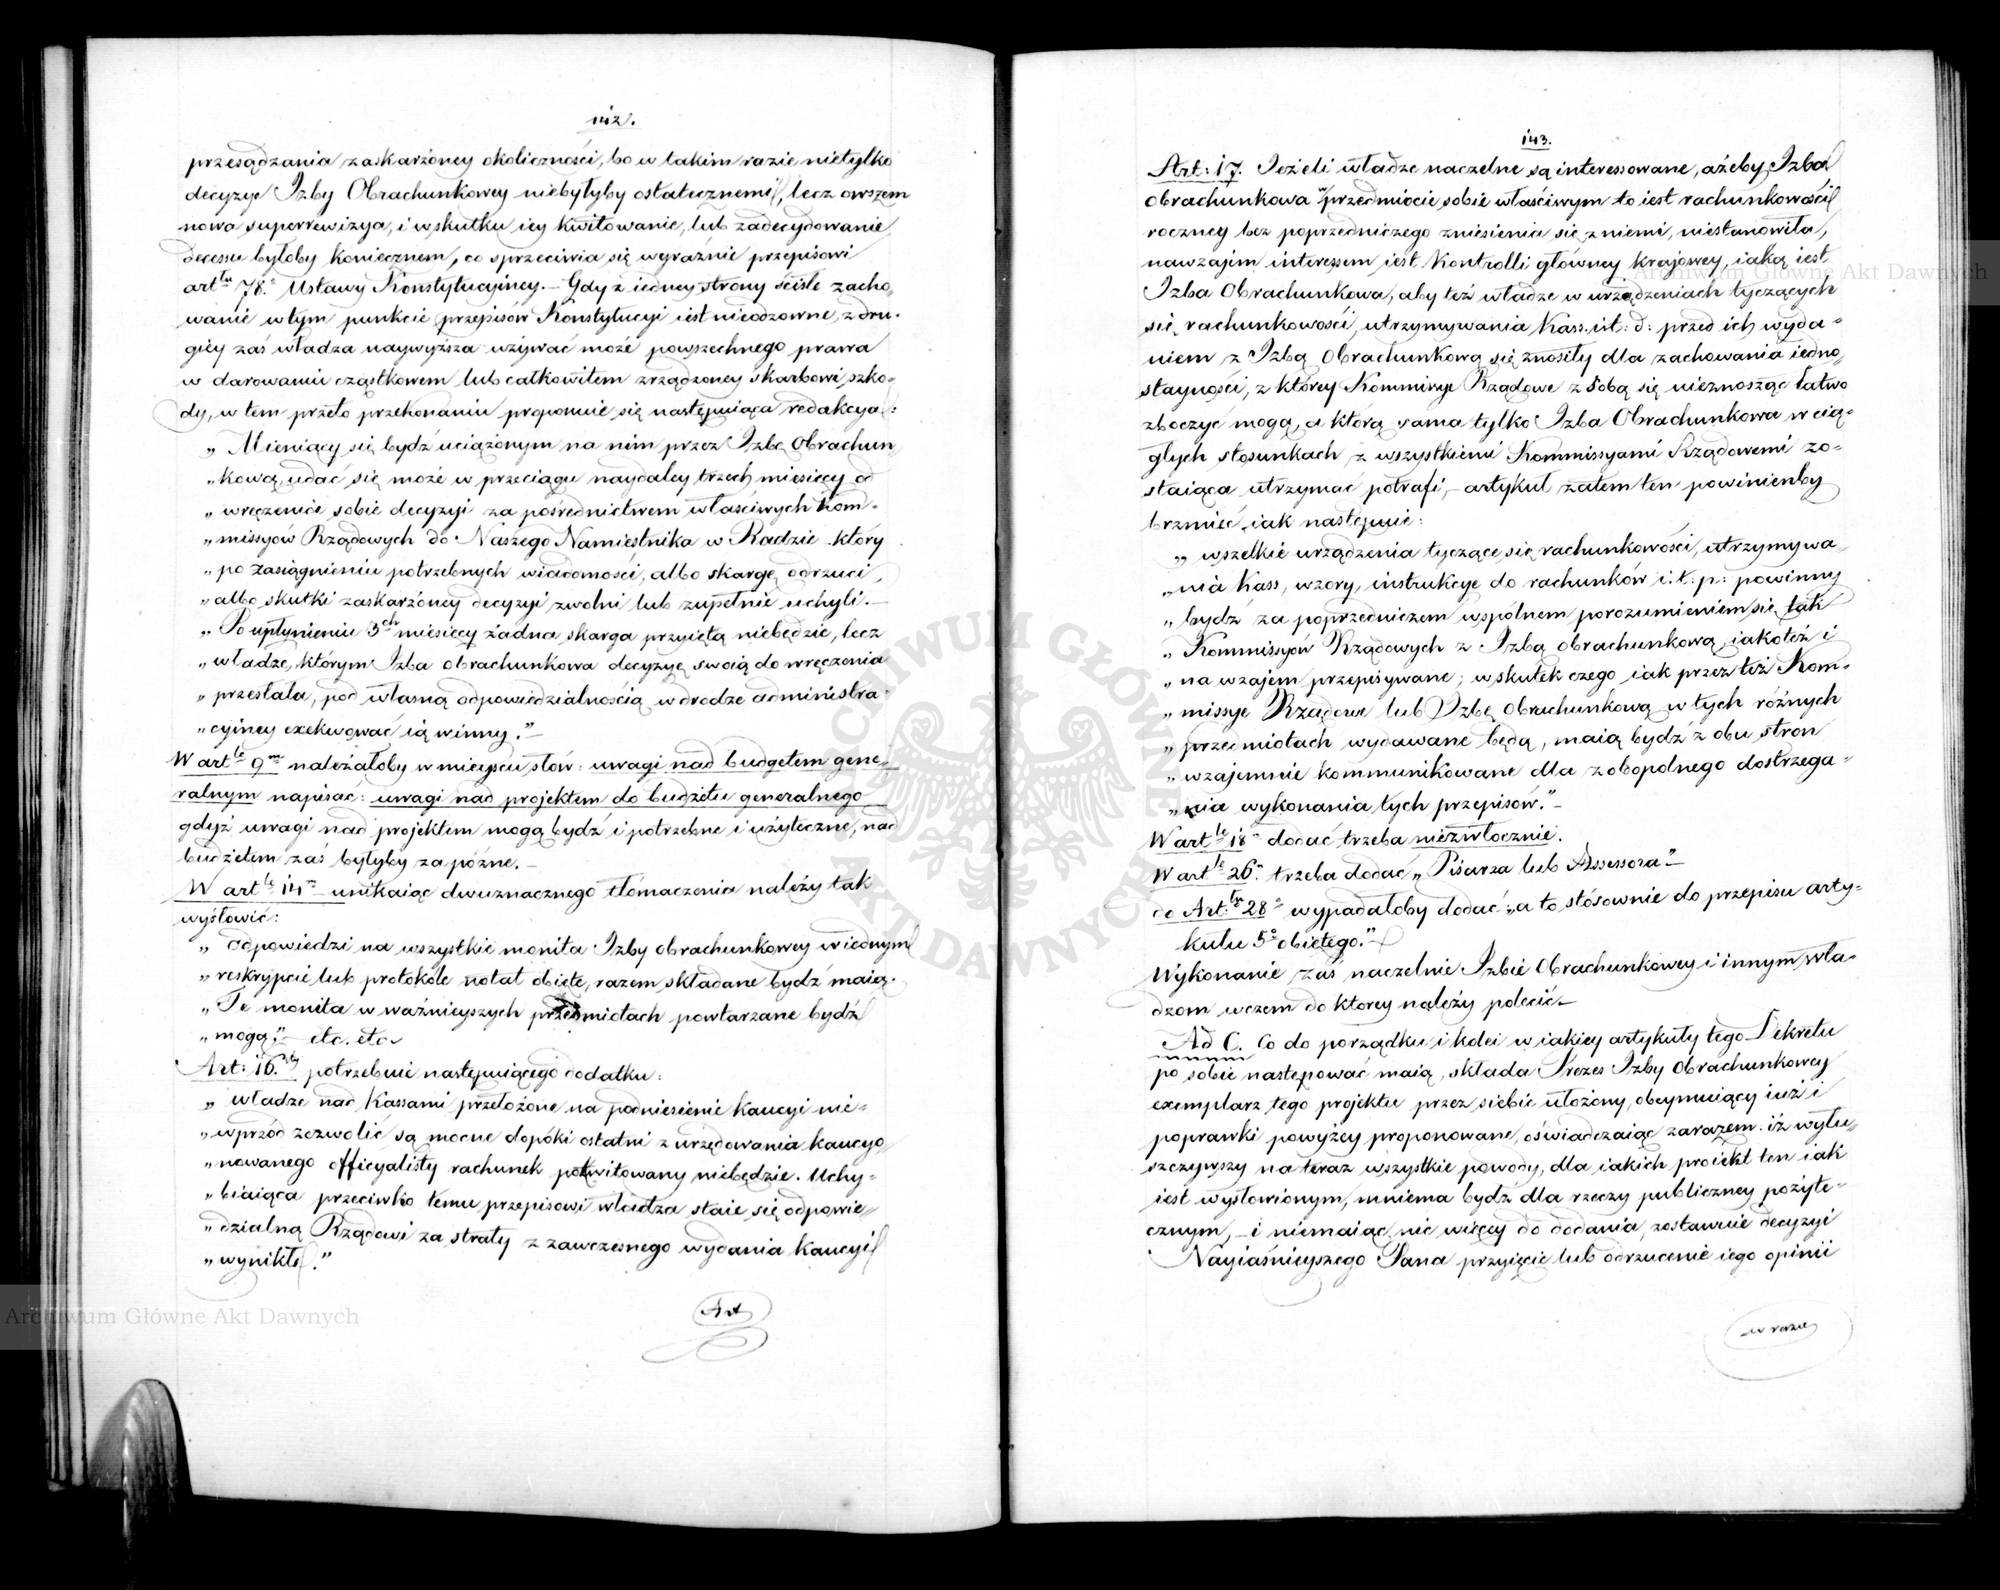 142.
przesądzania zaskarżoney okoliczności, bo w takim razie nietylko
decyzye Izby Obrachunkowey niebyłyby ostatecznemi, lecz owszem
nowa superrewizya, i w skutku iey kwitowanie, lub zadecydowanie
decessu byłoby koniecznem, co sprzeciwia się wyraźnie przepisowi
art<sup>łu</sup> 78.° Ustawy Konstytucyiney. – Gdy z iedney strony ścisłe zacho-
wanie w tym punkcie przepisów Konstytucyi iest nieodzowne, z dru-
giéy zaś władza naywyższa używać może powszechnego prawa
w darowaniu cząstkowem lub całkowitem zrządzoney skarbowi szko-
dy, w tem przeto przekonaniu proponuie się następuiąca redakcya:
„ Mieniący się bydź uciążonym na nim przez Izbę Obrachun
„kową, udać się może w przeciągu naydaley trzech miesięcy od
„ wręczenia sobie decyzyi za pośrednictwem właściwych Kom-
„missyów Rządowych do Naszego Namiestnika w Radzie który
„po zasiągnieniu potrzebnych wiadomości, albo skargę odrzuci,
„albo skutki zaskarżoney decyzyi zwolni lub zupełnie uchyli. –
„ Po upłynieniu 3<sup>ch</sup> miesięcy żadna skarga przyiętą niebędzie, lecz
„władze, którym Izba obrachunkowa decyzyę swoią do wręczenia
„ przesłała, pod własną odpowiedzialnością w drodze administra-
„cyiney exekwować ią winny.” –
W art<sup>le</sup> 9<sup>m</sup> należałoby w mieyscu słów: uwagi nad budgetem gene-
ralnym napisać: uwagi nad projektem do budżetu generalnego
gdyż uwagi nad projektem mogą bydź i potrzebne i użyteczne, nad
budżetem zaś byłyby za późne. –
W art<sup>le</sup> 14<sup>m</sup> unikaiąc dwuznacznego tłómaczenia należy tak
wysłowić:
„ odpowiedzi na wszystkie monita Izby obrachunkowey w iednym
„reskrypcie lub protokóle notat obięte, razem składane bydź maią.
„Te monita w ważnieyszych przedmiotach powtarzane bydź
„mogą.” – etc. etc.
Art: 16.<sup>ty</sup> potrzebuie następuiącego dodatku:
„ władze nad Kassami przełożone na podniesienie Kaucyi nie-
„wprzód zezwolić są mocne dopóki ostatni z urzędowania kaucyo
„nowanego officyalisty rachunek pokwitowany niebędzie. Uchy-
„biaiąca przeciwko temu przepisowi władza staie się odpowie-
„dzialną Rządowi za straty z zawczesnego wydania Kaucyi
„wynikłe.”
Art
143.
Art: 17. Jeżeli władze naczelne są interessowane, ażeby Izba
obrachunkowa w przedmiocie sobie właściwym to iest rachunkowości
roczney bez poprzedniczego zniesienia się z niemi, niestanowiła,
nawzajem interessem iest Kontrolli główney krajowey, iaką iest
Izba Obrachunkowa, aby też władze w urządzeniach tyczących
się rachunkowości, utrzymywania Kass. i t: d: przed ich wyda-
niem z Izbą Obrachunkową się znosiły dla zachowania iedno-
stayności, z którey Kommissye Rządowe z sobą się nieznosząc łatwo
zboczyć mogą, a którą sama tylko Izba Obrachunkowa w cią-
głych stosunkach z wszystkiemi Kommissyami Rządowemi zo-
staiąca utrzymać potrafi, – artykuł zatem ten powinienby
brzmieć iak następuie:
„ wszelkie urządzenia tyczące się rachunkowości, utrzymywa-
„nia Kass, wzory, instrukcye do rachunków i. t. p: powinny
„bydź za poprzedniczem wspólnem porozumieniem się tak
„ Kommissyów Rządowych z Izbą obrachunkową iakoteż i
„na wzajem przepisywane; w skutek czego iak przez też Kom-
„missye Rządowe lub Izbę Obrachunkową w tych różnych
„przedmiotach wydawane będą, maią bydź z obu stron
„wzajemnie kommunikowane dla zobopolnego dostrzega-
„nia wykonania tych przepisów.” –
W art<sup>le</sup> 18<sup>m</sup> dodać trzeba niezwłocznie.
W art<sup>le</sup> 26.° trzeba dodać „Pisarza lub Assessora” –
do Art:<sup>łu</sup> 28° wypadałoby dodać „a to stósownie do przepisu arty-
kułu 5° obiętego.” –
Wykonanie zaś naczelnie Izbie Obrachunkowey i innym wła-
dzom wczem do ktorey należy polecić –
Ad C. Co do porządku i kolei w iakiey artykuły tego Dekretu
po sobie następować maią, składa Prezes Izby Obrachunkowey
exemplarz tego projektu przez siebie ułożony, obeymuiący iuż i
poprawki powyżey proponowane, oświadczaiąc zarazem: iż wyłu-
szczywszy na teraz wszystkie powody, dla iakich proiekt ten iak
iest wysłowionym, mniema bydź dla rzeczy publiczney pożyte-
cznym, – i niemaiąc nic więcey do dodania, zostawuie decyzyi
Nayiaśnieyszego Pana przyięcie lub odrzucenie iego opinii
w razie
Archiwum Główne Akt Dawnych
Archiwum Główne Akt Dawnych
ARCHIWUM GŁÓWNE AKT DAWNYCH